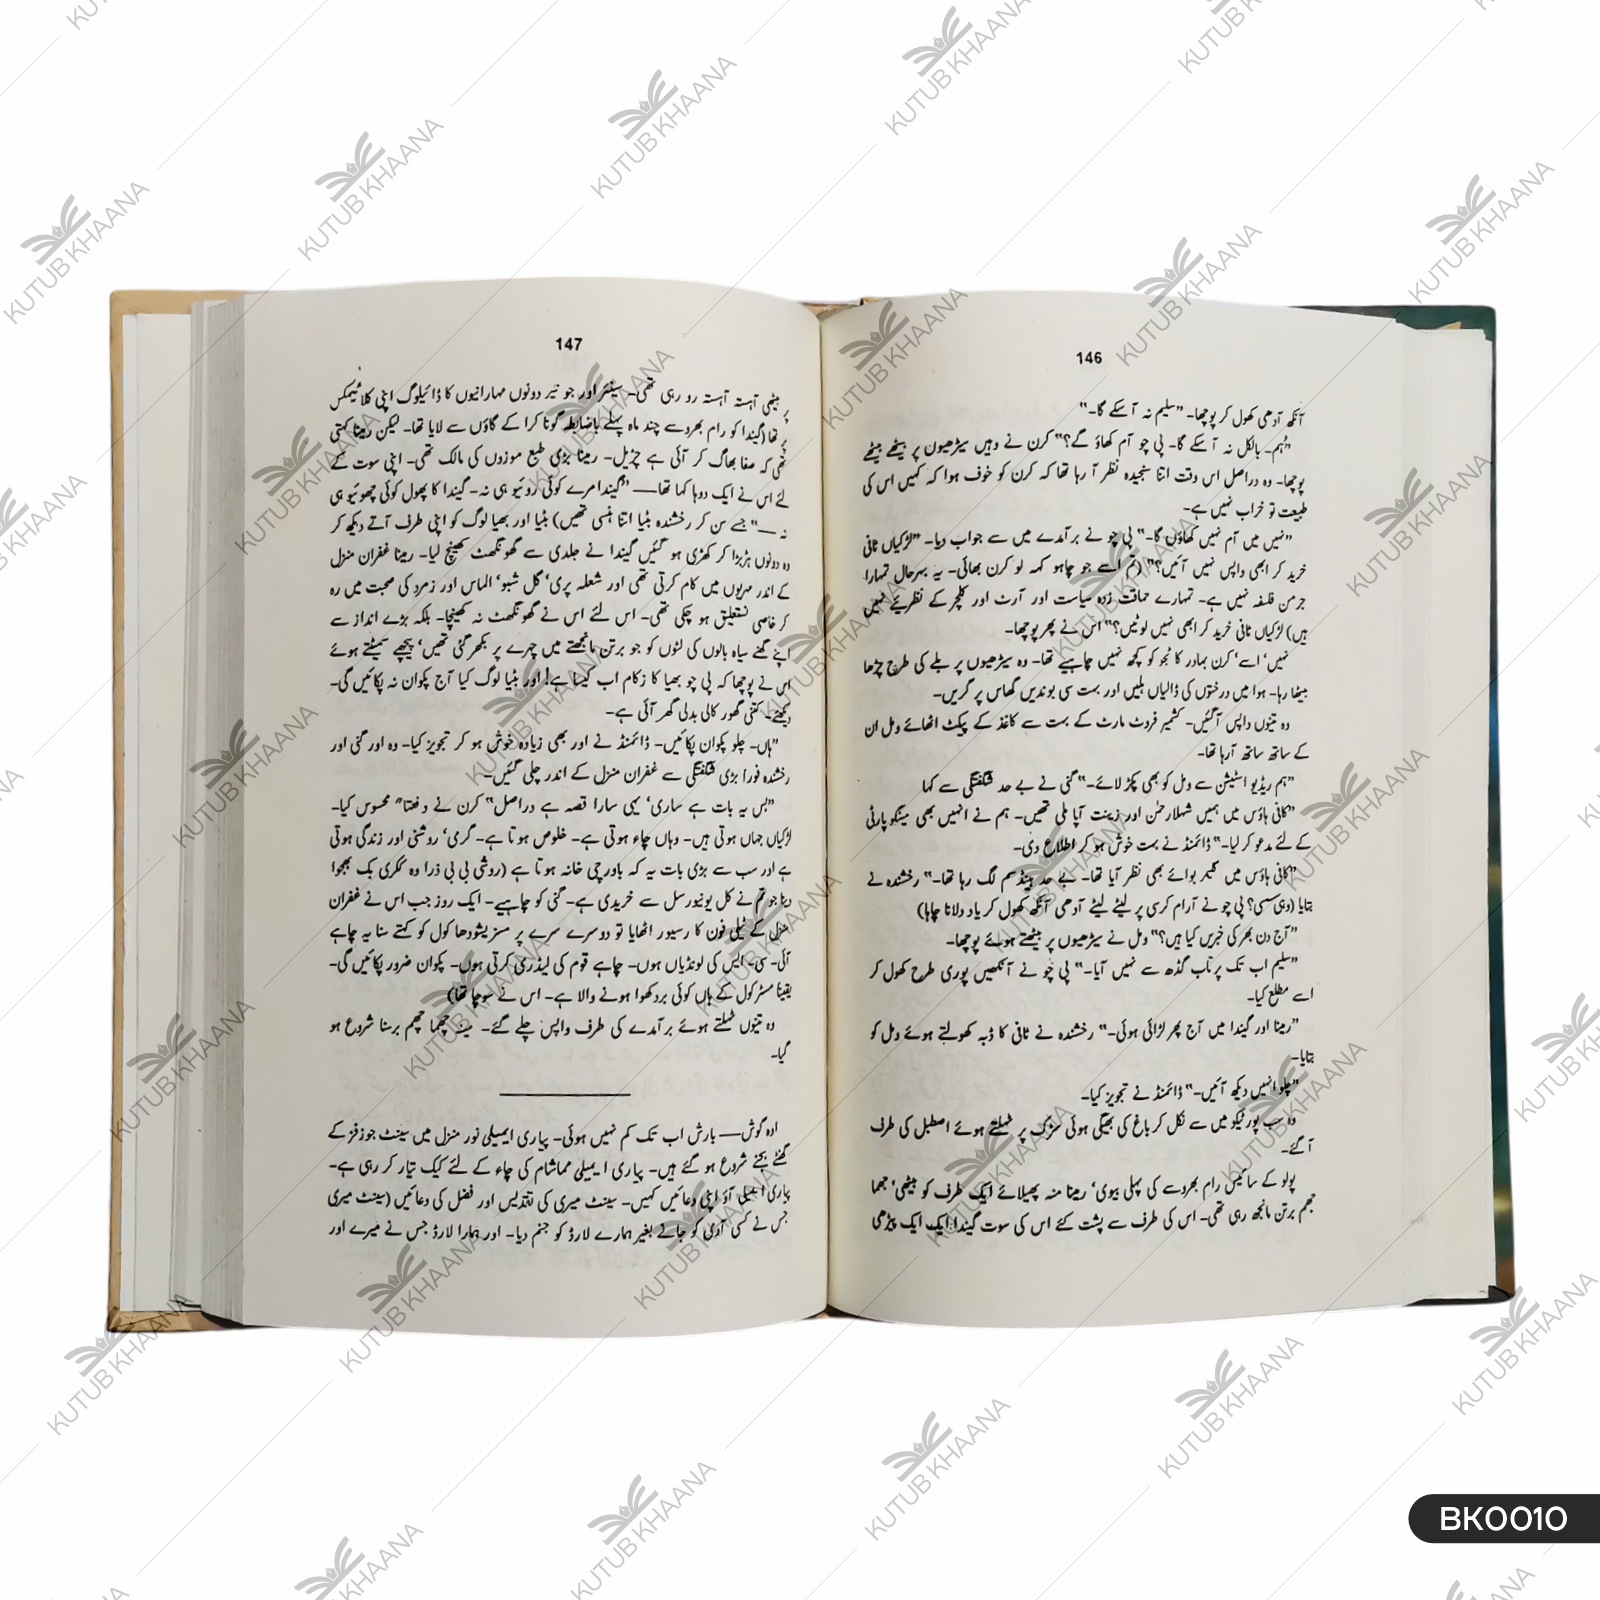 146
آنکھ آدھی کھول کر پوچھا۔ "سلیم نہ آسکے گا۔"
"ہُم۔ بالکل نہ آسکے گا۔ پی چو آم کھاؤ گے؟" کرن نے وہیں سیڑھیوں پر بیٹھے بیٹھے
پوچھا۔ وہ دراصل اس وقت اتنا سنجیدہ نظر آ رہا تھا کہ کرن کو خوف ہوا کہ کہیں اس کی
طبیعت تو خراب نہیں ہے۔
"نہیں میں آم نہیں کھاؤں گا۔" پی چو نے برآمدے میں سے جواب دیا۔ "لڑکیاں ٹائی
خرید کر ابھی واپس نہیں آئیں؟" (تم اسے جو چاہو کہہ لو کرن بھائی۔ یہ بہرحال تمہارا
جرمن فلسفہ نہیں ہے۔ تمہارے حماقت زدہ سیاست اور آرٹ اور کلچر کے نظریے نہیں
ہیں) لڑکیاں ٹائی خرید کر ابھی نہیں لوٹیں؟" اس نے پھر پوچھا۔
نہیں' اسے' کرن بہادر کاٹجو کو کچھ نہیں چاہیے تھا۔ وہ سیڑھیوں پر بلے کی طرح چڑھا
بیٹھا رہا۔ ہوا میں درختوں کی ڈالیاں ہلیں اور بہت سی بوندیں گھاس پر گریں۔
وہ تینوں واپس آگئیں۔ کشمیر فروٹ مارٹ کے بہت سے کاغذ کے پیکٹ اٹھائے ومل ان
کے ساتھ ساتھ آرہا تھا۔
"ہم ریڈیو اسٹیشن سے ومل کو بھی پکڑ لائے۔" گنی نے بے حد شگفتگی سے کہا
"کافی ہاؤس میں ہمیں شہلا رحمٰن اور زینت آپا ملی تھیں۔ ہم نے انہیں بھی مینگو پارٹی
کے لئے مدعو کر لیا۔" ڈائمنڈ نے بہت خوش ہو کر اطلاع دی۔
"کافی ہاؤس میں گلیمر بوائے بھی نظر آیا تھا۔ بے حد ہینڈسم لگ رہا تھا۔" رخشندہ نے
بتایا (وہی سسی؟ پی چو نے آرام کرسی پر لیٹے لیٹے آدھی آنکھ کھول کر یاد دلانا چاہا)
"آج دن بھر کی خبریں کیا ہیں؟" ومل نے سیڑھیوں پر بیٹھتے ہوئے پوچھا۔
"سلیم اب تک پرتاب گڈھ سے نہیں آیا۔" پی چو نے آنکھیں پوری طرح کھول کر
اسے مطلع کیا۔
"رمینا اور گیندا میں آج پھر لڑائی ہوئی۔" رخشندہ نے ٹافی کا ڈبہ کھولتے ہوئے ومل کو
بتایا۔
"چلو انہیں دیکھ آئیں۔" ڈائمنڈ نے تجویز کیا۔
وہ سب پورٹیکو میں سے نکل کر باغ کی بھیگی ہوئی سڑک پر ٹہلتے ہوئے اصطبل کی طرف
آگئے۔
پولو کے سائیس رام بھروسے کی پہلی بیوی' رمینا منہ پھیلائے ایک طرف کو بیٹھی' جھما
جھم برتن مانجھ رہی تھی۔ اس کی طرف سے پشت کئے اس کی سوت گیندا ایک ایک پیڑھی
147
پر بیٹھی آہستہ آہستہ رو رہی تھی۔ سینئر اور جونیئر دونوں مہارانیوں کا ڈائیلوگ اپنی کلائمیکس
پر تھا (گیندا کو رام بھروسے چند ماہ پہلے باضابطہ گونا کرا کے گاؤں سے لایا تھا۔ لیکن رمینا کہتی
تھی کہ صفا بھاگ کر آئی ہے چڑیل۔ رمینا بڑی طبع موزوں کی مالک تھی۔ اپنی سوت کے
لئے اس نے ایک دوہا کہا تھا— "گیندا مرے کوئی روئیو ہی نہ۔ گیندا کا پھول کوئی چھوئیو ہی
نہ —" جسے سن کر رخشندہ بٹیا اتنا ہنسی تھیں) بٹیا اور بھیا لوگ کو اپنی طرف آتے دیکھ کر
وہ دونوں ہڑبڑا کر کھڑی ہو گئیں گیندا نے جلدی سے گھونگھٹ کھینچ لیا۔ رمینا غفران منزل
کے اندر مہریوں میں کام کرتی تھی اور شعلہ پری' گل شبو' الماس اور زمرد کی صحبت میں رہ
کر خاصی نستعلیق ہو چکی تھی۔ اس لئے اس نے گھونگھٹ نہ کھینچا۔ بلکہ بڑے انداز سے
اپنے گھنے سیاہ بالوں کی لٹوں کو جو برتن مانجھتے میں چہرے پر بکھر گئی تھیں' پیچھے سمیٹتے ہوئے
اس نے پوچھا کہ پی چو بھیا کا زکام اب کیسا ہے! اور بٹیا لوگ کیا آج پکوان نہ پکائیں گی۔
دیکھئے۔ کتنی گھور کالی بدلی گھر آئی ہے۔
"ہاں۔ چلو پکوان پکائیں۔ ڈائمنڈ نے اور بھی زیادہ خوش ہو کر تجویز کیا۔ وہ اور گنی اور
رخشندہ فوراً بڑی شگفتگی سے غفران منزل کے اندر چلی گئیں۔
"بس یہ بات ہے ساری' یہی سارا قصہ ہے دراصل" کرن نے دفعتاً" محسوس کیا۔
لڑکیاں جہاں ہوتی ہیں۔ وہاں چاء ہوتی ہے۔ خلوص ہوتا ہے۔ گرمی' روشنی اور زندگی ہوتی
ہے اور سب سے بڑی بات یہ کہ باورچی خانہ ہوتا ہے (روشی بی بی ذرا وہ ککری بک بھجوا
دینا جو تم نے کل یونیورسل سے خریدی ہے۔ گنی کو چاہیے۔ ایک روز جب اس نے غفران
منزل کے ٹیلی فون کا رسیور اٹھایا تو دوسرے سرے پر مسز یشودھا کول کو کہتے سنا یہ چاہے
آئی۔ سی۔ ایس کی لونڈیاں ہوں۔ چاہے قوم کی لیڈری کرتی ہوں۔ پکوان ضرور پکائیں گی۔
یقیناً مسٹر کول کے ہاں کوئی بردکھوا ہونے والا ہے۔ اس نے سوچا تھا)
وہ تینوں ٹہلتے ہوئے برآمدے کی طرف واپس چلے گئے۔ مینہ چھما چھم برسنا شروع ہو
گیا۔
اوہ گوش— بارش اب تک کم نہیں ہوئی۔ پیاری ایمیلی نور منزل میں سینٹ جوزفز کے
گھنٹے بجنے شروع ہو گئے ہیں۔ پیاری ایمیلی مما شام کی چاء کے لئے کیک تیار کر رہی ہے۔
پیاری ایمیلی آؤ اپنی دعائیں کہیں۔ سینٹ میری کی تقدیس اور فضل کی دعائیں (سینٹ میری
جس نے کسی آدمی کو جانے بغیر ہمارے لارڈ کو جنم دیا۔ اور ہمارا لارڈ جس نے میرے اور
KUTUB KHAANA
BK0010